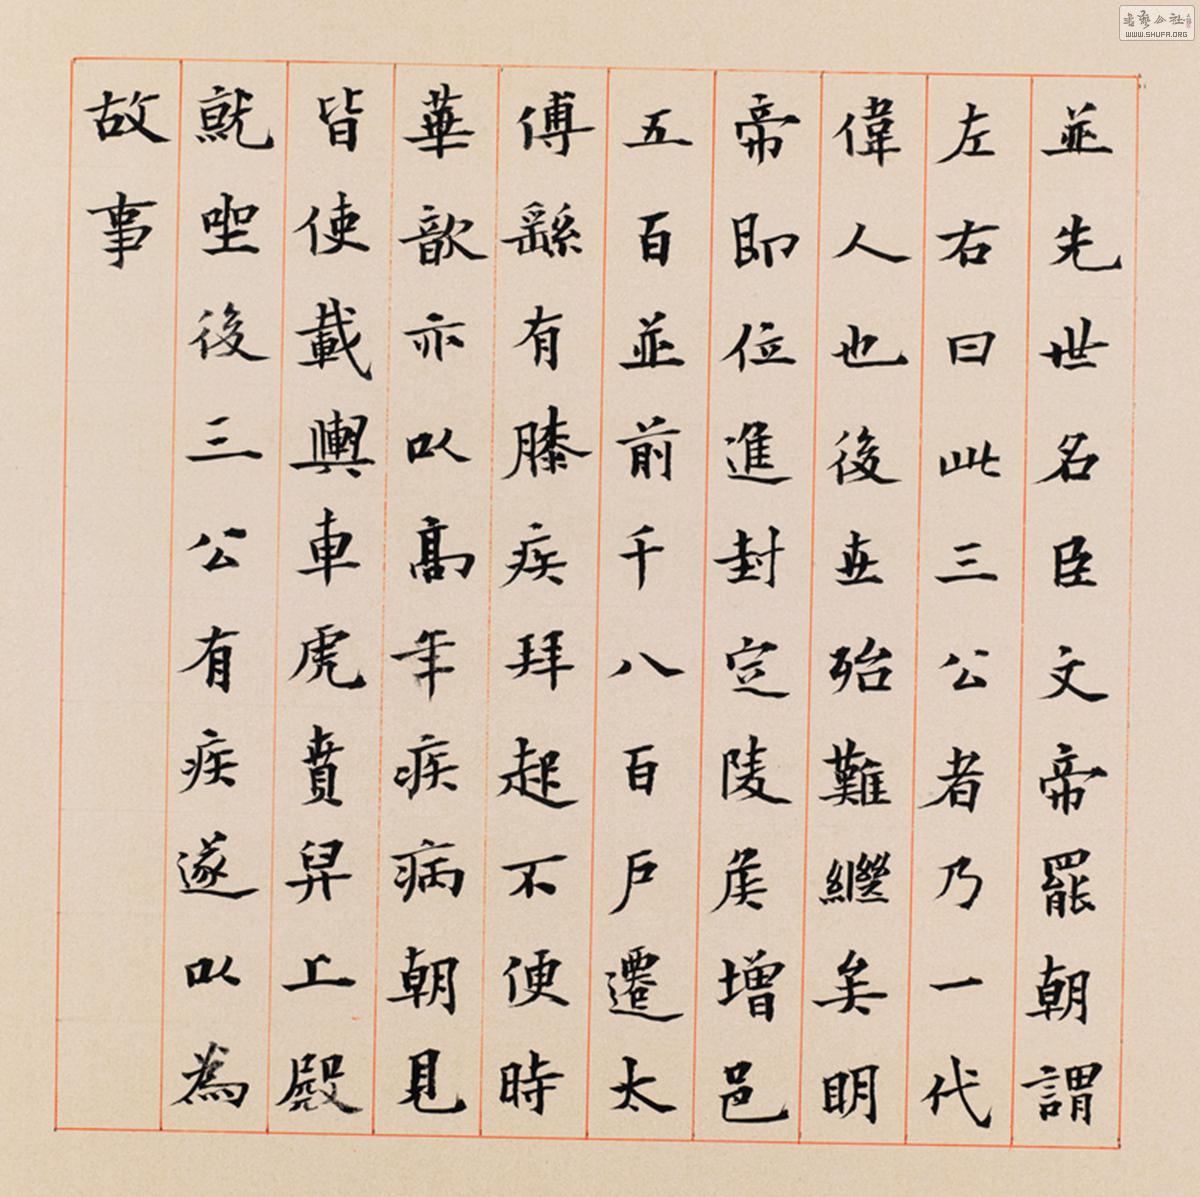 並先世名臣文帝罷朝謂
左右曰此三公者乃一代
偉人也後世殆難繼矣明
帝即位進封定陵侯增邑
五百並前千八百戶遷太
傅繇有膝疾拜起不便時
華歆亦以高年疾病朝見
皆使載輿車虎賁舁上殿
就坐後三公有疾遂以為
故事
書藝公社
WWW.SHUFA.ORG